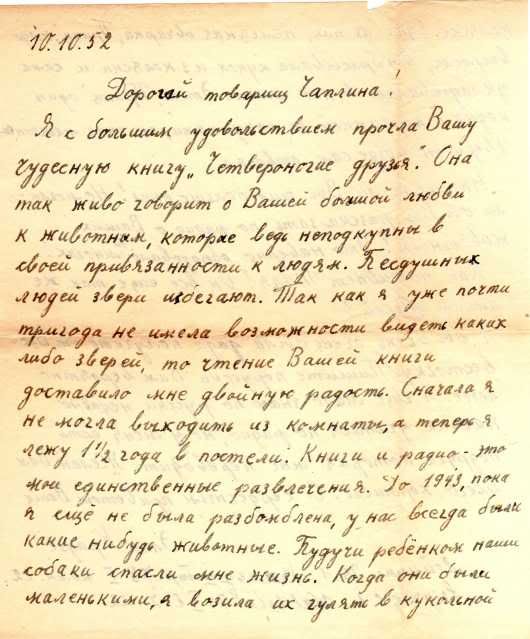 10.10.52
Дорогой товарищ Чаплина!
Я с большим удовольствием прочла Вашу
чудесную книгу „Четвероногие друзья". Она
так живо говорит о Вашей большой любви
к животным, которые ведь неподкупны в
своей привязанности к людям. Бездушных
людей звери избегают. Так как я уже почти
тригода не имела возможности видеть каких
либо зверей, то чтение Вашей книги
доставило мне двойную радость. Сначала я
не могла выходить из комнаты, а теперь я
лежу 1 1/2 года в постели. Книги и радио - это
мои единственные развлечения. До 1943, пока
я ещё не была разбомблена, у нас всегда были
какие нибудь животные. Будучи ребёнком наши
собаки спасли мне жизнь. Когда они были
маленькими, я возила их гулять в кукольной